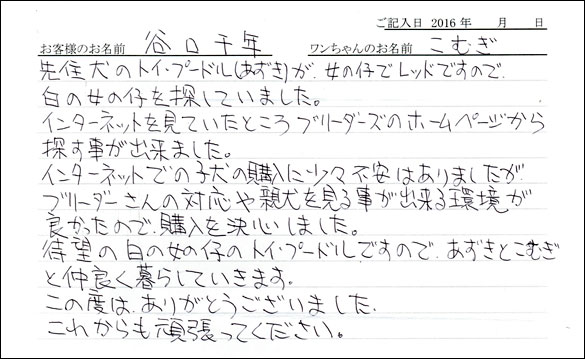 ご記入日 2016 年 月 日
お客様のお名前 谷口千年 ワンちゃんのお名前 こむぎ
先住犬のトイ・プードル(あずき)が、女の仔でレッドですので、
白の女の仔を探していました。
インターネットを見ていたところブリーダーズのホームページから
探す事が出来ました。
インターネットでの子犬の購入に少々不安はありましたが
ブリーダーさんの対応や親犬を見る事が出来る環境が
良かったので、購入を決心しました。
待望の白の女の仔のトイ・プードルですので、あずきとこむぎ
と仲良く暮らしていきます。
この度は、ありがとうございました。
これからも頑張ってください。